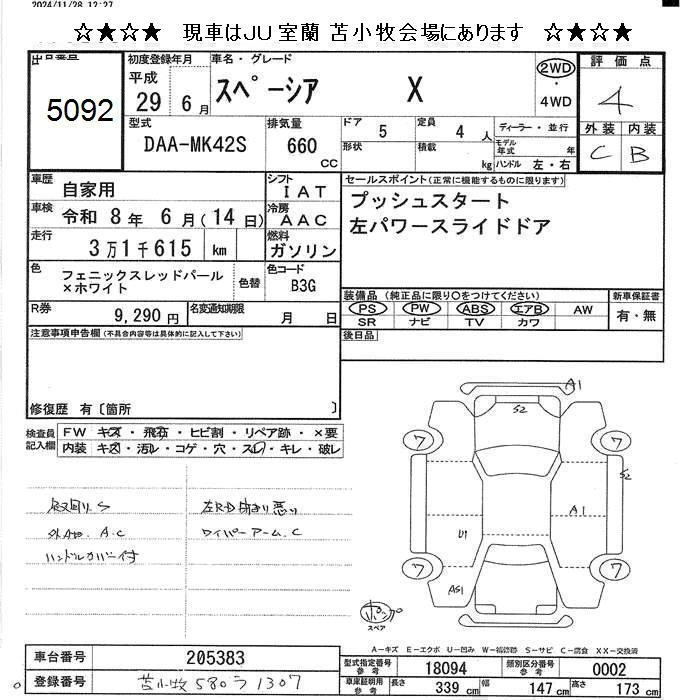 2024/11/28 12:27
☆★☆★ 現車はJU室蘭 苫小牧会場にあります ☆★☆★
出品番号
5092
初度登録年月
平成
29 6 月
車名・グレード
スペーシア X
2WD
・
4WD
評価点
4
外装 内装
C B
型式
DAA-MK42S
排気量
660
cc
ドア
5
定員
4 人
形状
積載
kg
ディーラー・並行
モデル年式 年
ハンドル 左・右
車歴
自家用
シフト
IAT
車検
令和 8 年 6 月(14 日)
冷房
AAC
走行
3 万 1 千 615 km
燃料
ガソリン
色
フェニックスレッドパール
×ホワイト
色替
色コード
B3G
R券
9,290 円
名変通知期限
月 日
セールスポイント(正常に機能するものに限ります)
プッシュスタート
左パワースライドドア
装備品(純正品に限り○をつけてください)
PS PW ABS エアB AW
SR ナビ TV カワ
新車保証書
有・無
後日品
注意事項申告欄(不具合内容等は具体的に記入して下さい)
修復歴 有〔箇所 〕
検査員
記入欄
FW キズ・飛石・ヒビ割・リペア跡・×要
内装 キズ・汚レ・コゲ・穴・スレ・キレ・破レ
S
左R-D 閉まり悪い
A.C
ワイパーアーム.C
ハンドルカバー付
A1
S2
ワ ワ
S2
A1
U1
ワ ワ
AS1
スペア
A-キズ E-エクボ U-凹み W-補修跡 S-サビ C-腐食 XX-交換済
車台番号
205383
登録番号
苫小牧 580 ラ 1307
型式指定番号
参考
18094
類別区分番号
参考
0002
車庫証明用
参考
長さ 339 cm 幅 147 cm 高さ 173 cm